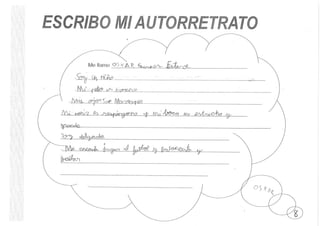 ESCRIBO MI AUTORRETRATO
Me llamo OSKAR Esteve
Soy un niño
Mi pelo es moreno
Mis ojos son Marrones
Mi nariz es y mi boca es estrecha y
grande
Soy delgado
Me encanta jugar al futbol y baloncesto y
OSKAR
8